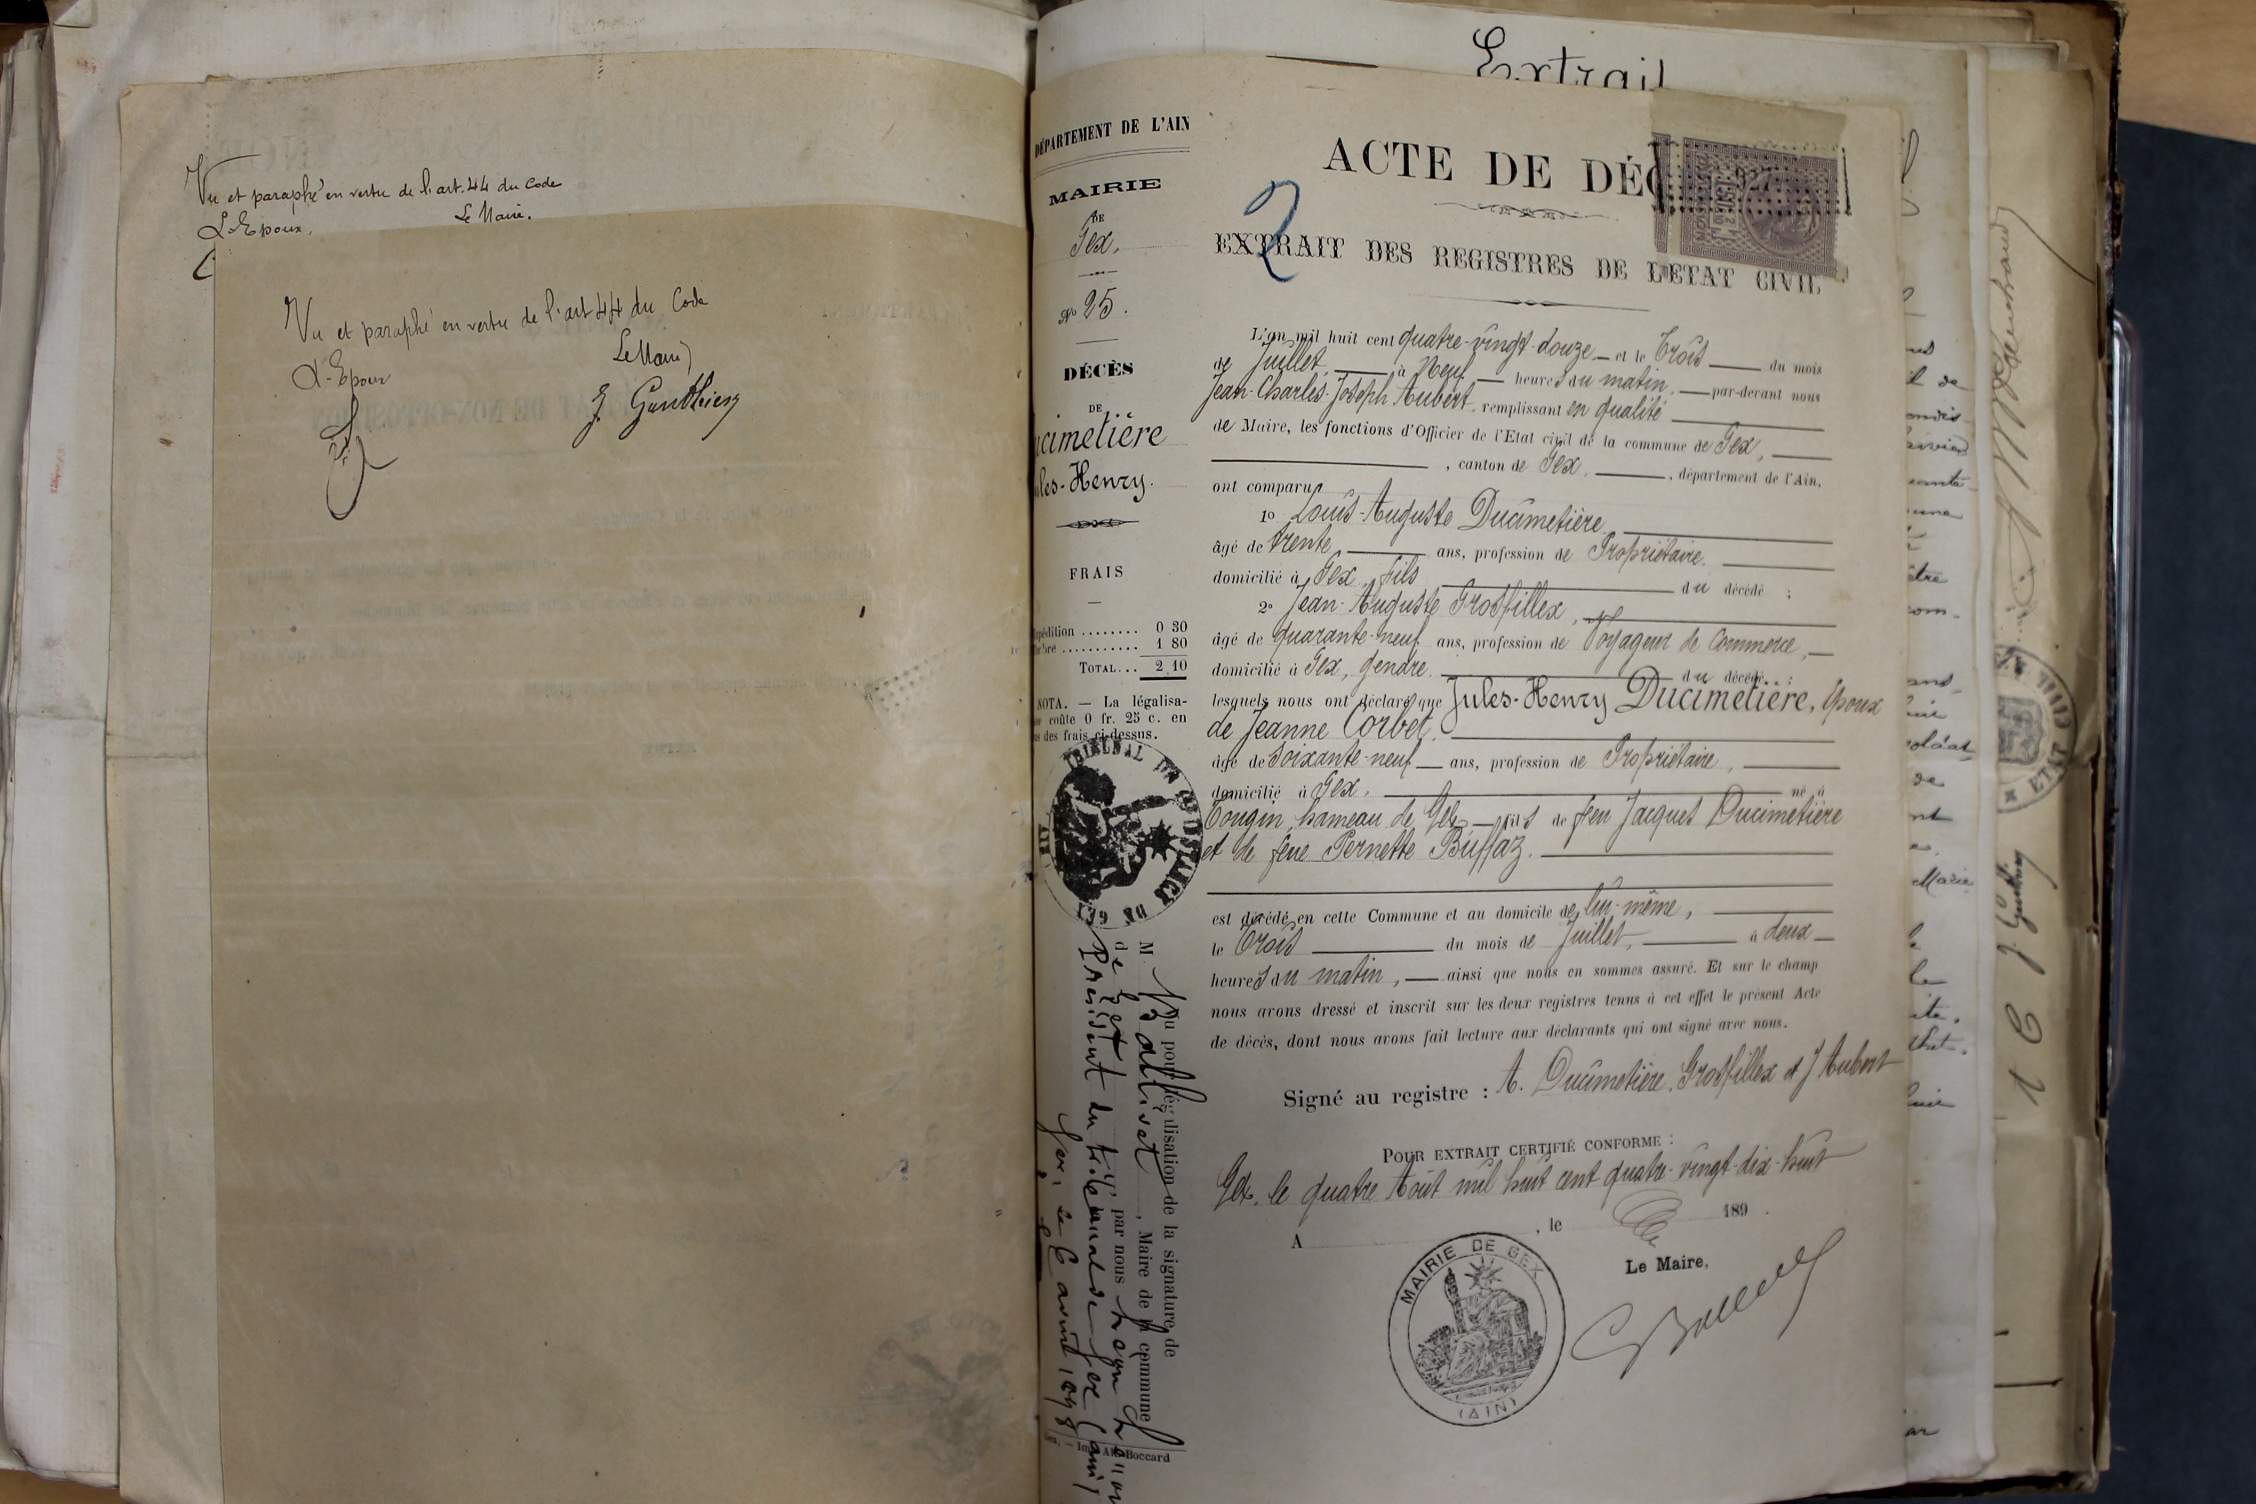 Vu et paraphé en vertu de l'art. 44 du Code
L'Epoux, Le Maire.
Vu et paraphé en vertu de l'art 44 du Code
L'Epoux Le Maire
J. Gauthier
Extrait
DÉPARTEMENT DE L'AIN
MAIRIE
DE
Gex.
No 25.
DÉCÈS
DE
ucimetière
ules-Henry.
FRAIS
pédition ........ 0 30
bre ........... 1 80
TOTAL... 2.10
NOTA. — La légalisa-
coûte 0 fr. 25 c. en
us des frais ci-dessus.
TRIBUNAL DE 1re INSTANCE DE GEX
AIN
Vu pour légalisation de la signature de
M. Ballivat, Maire de la commune
de Gex par nous
Président du tribunal de Gex (Ain)
Gex, le 6 août 1898
Imp. Al. Boccard
ACTE DE DÉC
2
EXTRAIT DES REGISTRES DE L'ÉTAT CIVIL
L'an mil huit cent quatre-vingt-douze — et le Trois — du mois
de Juillet, — à Neuf — heures du matin, — par-devant nous
Jean-Charles-Joseph Aubert, remplissant en qualité
de Maire, les fonctions d'Officier de l'Etat civil de la commune de Gex,
, canton de Gex, —, département de l'Ain,
ont comparu
1o Louis-Auguste Ducimetière
âgé de trente — ans, profession de Propriétaire.
domicilié à Gex, fils — du décédé ;
2o Jean-Auguste Grosfillex,
âgé de quarante-neuf ans, profession de Voyageur de commerce,
domicilié à Gex, gendre — du décédé.. ;
lesquels nous ont déclaré que Jules-Henry Ducimetière, époux
de Jeanne Corbet.
âgé de soixante-neuf — ans, profession de Propriétaire,
domicilié à Gex, — né à
Tougin, hameau de Gex — fils de feu Jacques Ducimetière
et de feue Pernette Buffaz.
est décédé en cette Commune et au domicile de lui-même,
le Trois — du mois de Juillet, — à deux —
heures du matin, — ainsi que nous en sommes assuré. Et sur le champ
nous avons dressé et inscrit sur les deux registres tenus à cet effet le présent Acte
de décès, dont nous avons fait lecture aux déclarants qui ont signé avec nous.
Signé au registre : A. Ducimetière, Grosfillex et J Aubert
POUR EXTRAIT CERTIFIÉ CONFORME :
Gex, le quatre Août mil huit cent quatre-vingt-dix-huit
A , le 189 .
Le Maire,
MAIRIE DE GEX
(AIN)